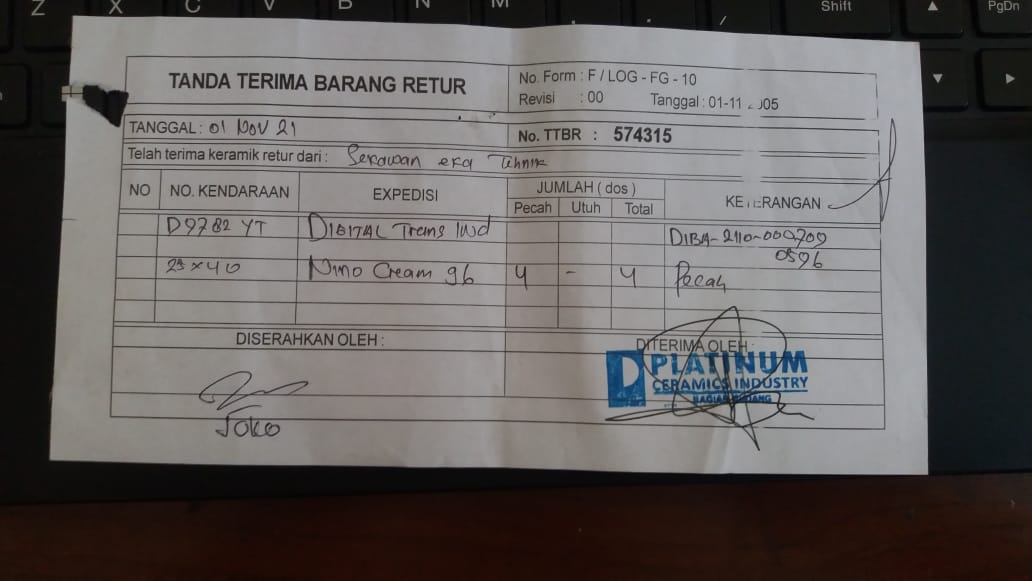 Z X C V B N M Shift PgDn
TANDA TERIMA BARANG RETUR
No. Form : F / LOG - FG - 10
Revisi : 00 Tanggal : 01-11 005
TANGGAL : 01 NOV 21
No. TTBR : 574315
Telah terima keramik retur dari : Serawan eka Tehnik
NO NO. KENDARAAN EXPEDISI JUMLAH ( dos ) KETERANGAN
Pecah Utuh Total
D9782 YT DIGITAL Trans Ind DIBA-2110-000709
0596
25 x 40 Nino Cream 96 4 - 4 Pecah
DISERAHKAN OLEH : DITERIMA OLEH :
PLATINUM
CERAMICS INDUSTRY
BAGIAN GUDANG
Joko